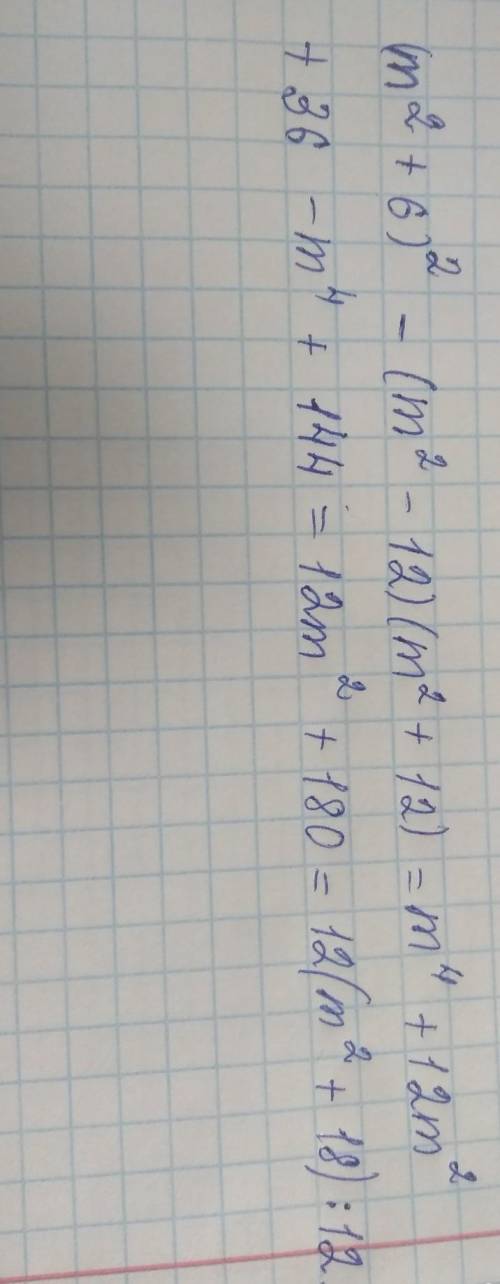 (m² + 6)² - (m² - 12)(m² + 12) = m⁴ + 12m²
+ 36 - m⁴ + 144 = 12m² + 180 = 12(m² + 18) : 12